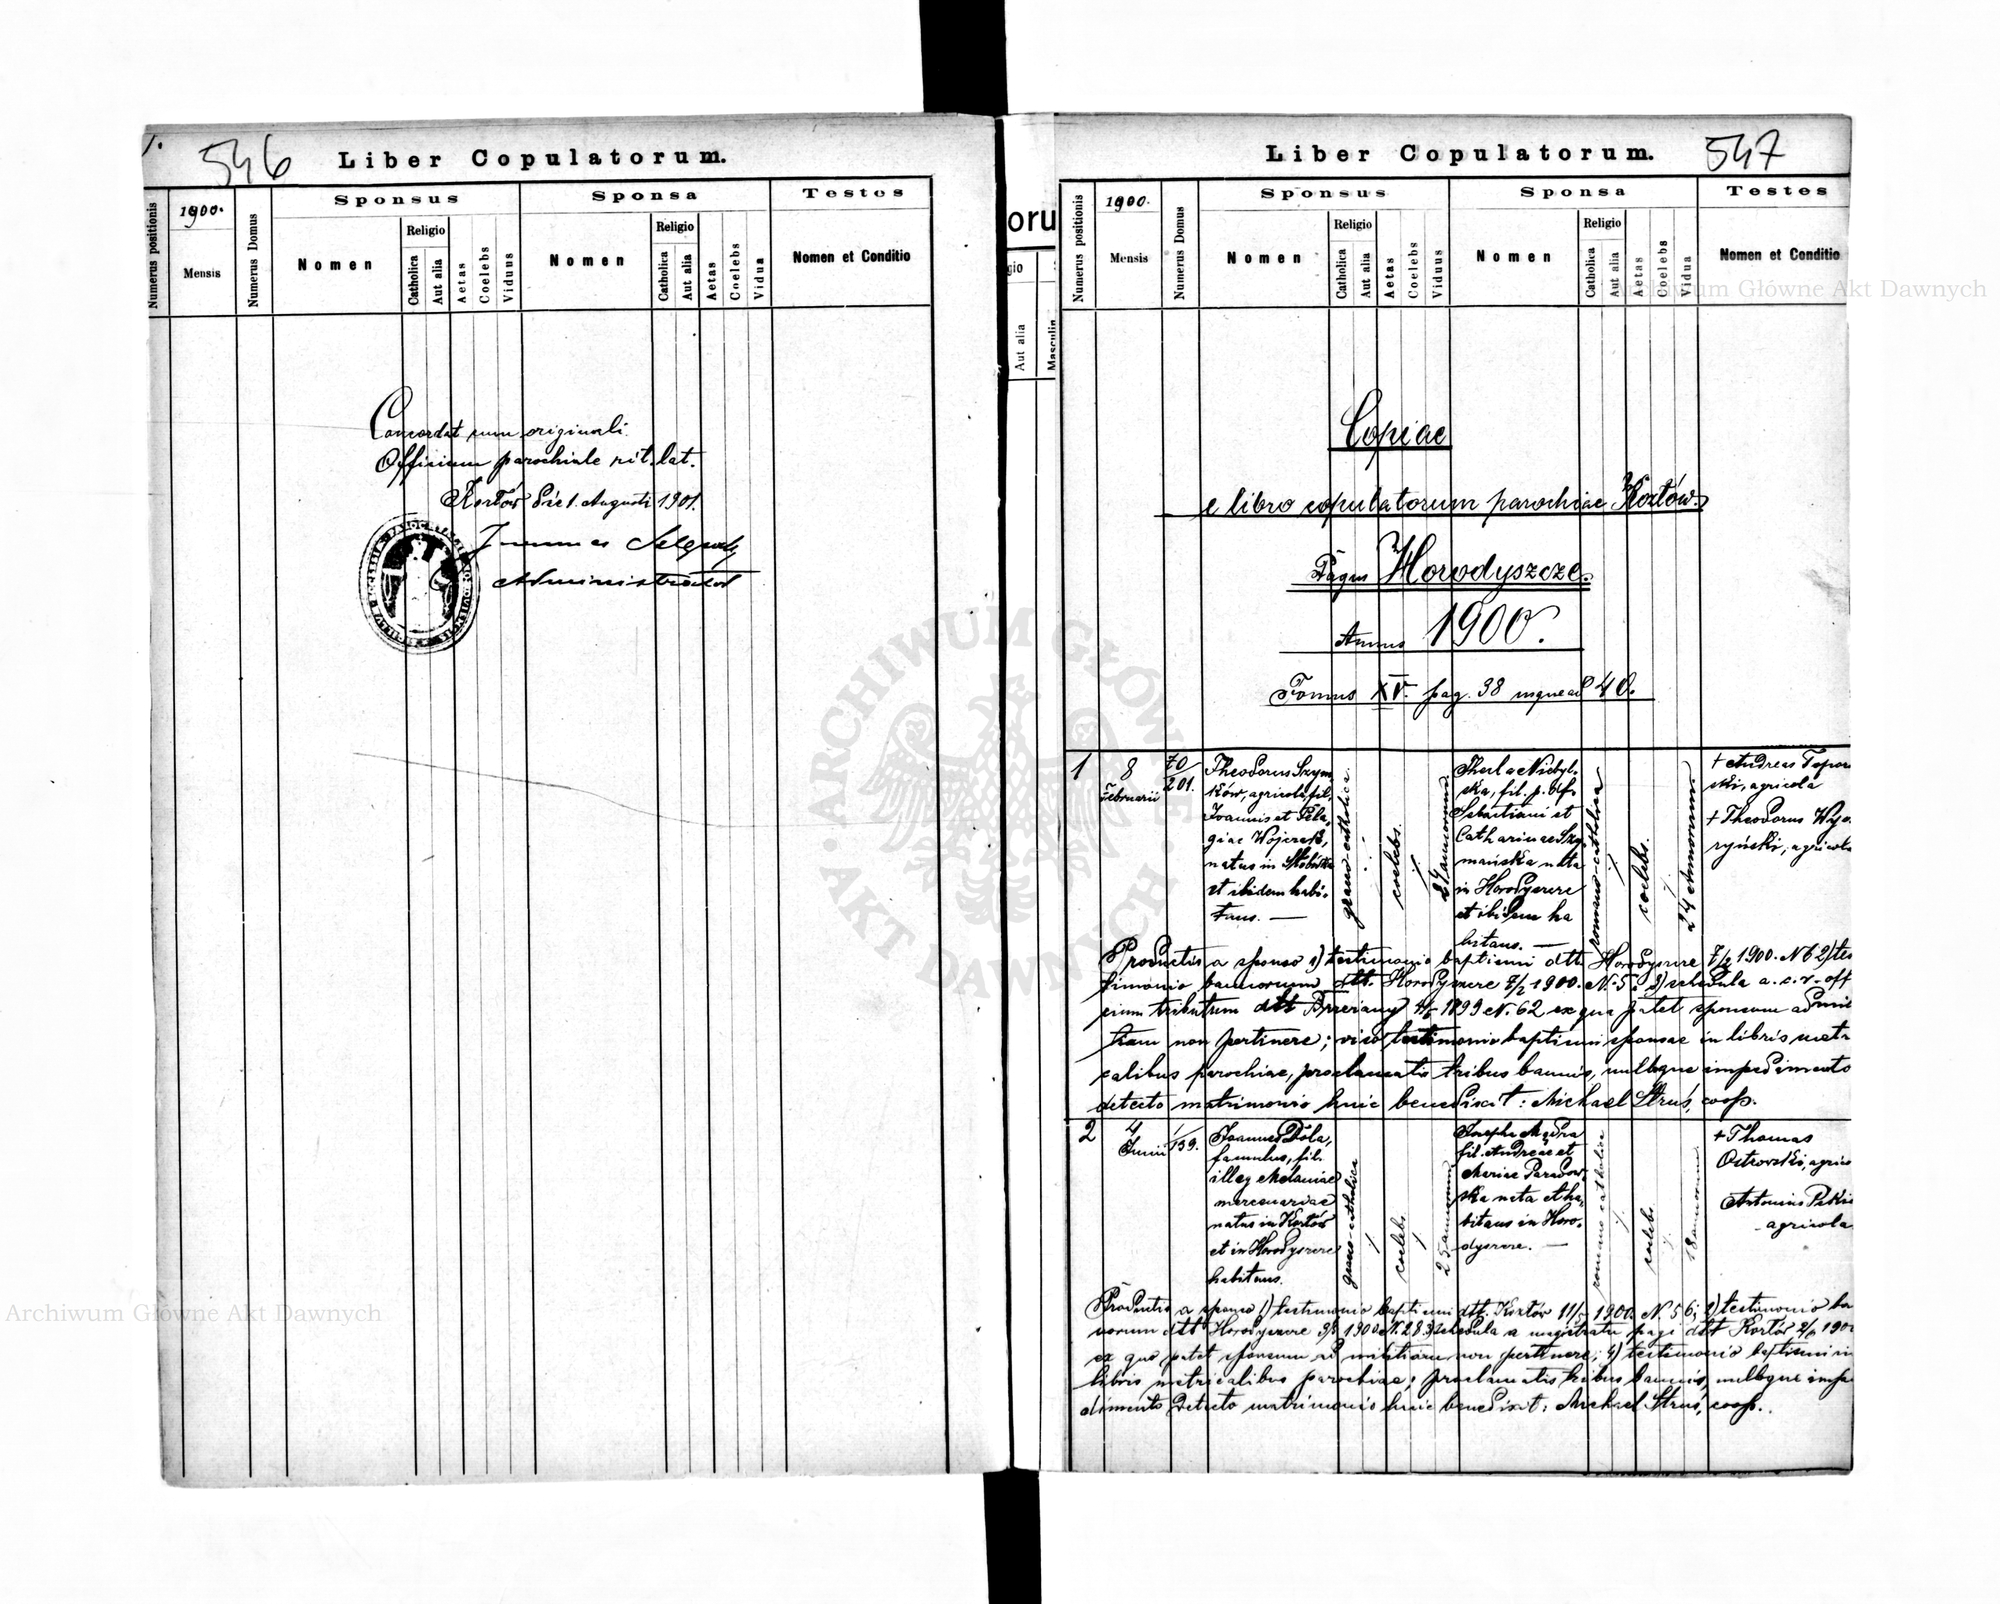 1.
546
Liber Copulatorum.
Numerus positionis
1900.
Mensis
Numerus Domus
Sponsus
Nomen
Religio
Catholica
Aut alia
Aetas
Coelebs
Viduus
Sponsa
Nomen
Religio
Catholica
Aut alia
Aetas
Coelebs
Vidua
Testes
Nomen et Conditio
Concordat cum originali.
Officium parochiale rit. lat.
Kozłów die 1. Augusti 1901.
Joannes
Administrator
oru
gio
Aut alia
Masculin
Liber Copulatorum.
547
Numerus positionis
1900.
Mensis
Numerus Domus
Sponsus
Nomen
Religio
Catholica
Aut alia
Aetas
Coelebs
Viduus
Sponsa
Nomen
Religio
Catholica
Aut alia
Aetas
Coelebs
Vidua
Testes
Nomen et Conditio
Copiae
e libro copulatorum parochiae Kozłów.
Pagus Horodyszcze.
Annus 1900.
Tomus XV. pag. 38 usque ad 40.
1
8
Februarii
70/201.
Theodorus Szym
ków, agricola, fil.
Joannis et Pela
giae Wojcech,
natus in
et ibidem habi-
tans. —
graeco-catholica
coelebs.
annorum
Thecla Niebyl-
ska, fil. p. def.
Sebastiani et
Catharinae Szy
mańska nata
in Horodyszcze
et ibidem ha
bitans. —
romano-catholica
coelebs.
24 annorum
+ Andreas Topor
ski, agricola
+ Theodorus Wyo
ryński, agricola
Productis a sponso 1) testimonio baptismi dtt. Horodyszcze 7/2 1900. N 6 2) tes
timonio bannorum dtt. Horodyszcze 7/2 1900. N. 5; 3) schedula a. c. r. off
icium tributum dtt Brzeżany 1899 N. 62 ex qua patet sponsum ad mili
tiam non pertinere; viso testimonio baptismi sponsae in libris metri
calibus parochiae, proclamatis tribus bannis, nulloque impedimento
detecto matrimonio huic benedixit: Michael Struś, coop.
2
4
Junii
1/139.
Joannes Dola,
famulus, fil.
illeg Melaniae
mercenariae
natus in Kozłów
et in Horodyszcze
habitans.
graeco-catholica
coelebs.
25 annorum
Josepha Mądra
fil. Andreae et
Mariae Paradow
ska nata et ha-
bitans in Horo-
dyszcze. —
romano catholica
coelebs.
18 annorum
+ Thomas
Ostrowski, agrico
Antonius
agricola
Productis a sponso 1) testimonio baptismi dtt. Kozłów 11/5 1900. N. 56; 2) testimonio ba
norum dtt Horodyszcze 1900 N. 28 3) schedula a magistratu pagi dtt Kozłów 190
ex qua patet sponsum ad militiam non pertinere; 4) testimonio baptismi in
libris metricalibus parochiae; proclamatis tribus bannis, nulloque impe
dimento detecto matrimonio huic benedixit: Michael Struś, coop.
Archiwum Główne Akt Dawnych
ARCHIWUM GŁÓWNE
AKT DAWNYCH
Archiwum Główne Akt Dawnych